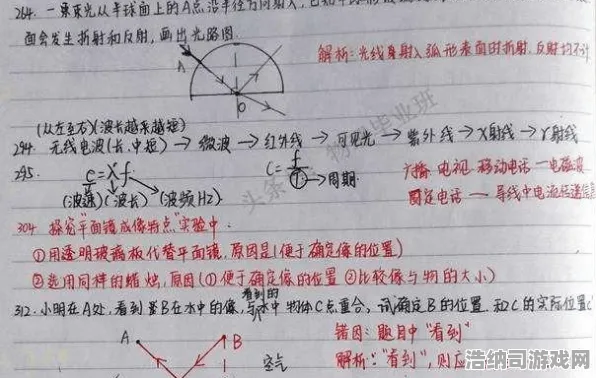 264. 一束束光从半球面上的A点沿半径方向射入,
面会发生折射和反射,画出光路图.
解析:光线身射入弧形表面时折射.反射均不计
A
O
(从左至右)(波长越来越短)
294. 无线电波(长.中短) → 微波 → 红外线 → 可见光 → 紫外线 → X射线 → γ射线
295. c=λf
c=f/T → 周期
(波速)(波长)(波频Hz)
广播 电视 移动电话 — 电磁波
固定电话 — 导线中电流传递信息
304 探究"平面镜成像特点"实验中:
①用透明玻璃板代替平面镜,原因是(便于确定像的位置)
②选用同样的蜡烛,原因(①便于确定像的位置 ②比较像与物的大小)
看到的
312.小明在A处,看到B在水中的像,与水中物体C点重合,试确定B的位置.和C的实际位置C'
错因:题目中"看到"
解析:"看到",则应
A
B
空气
头条
毕业班
浩纳司游戏网